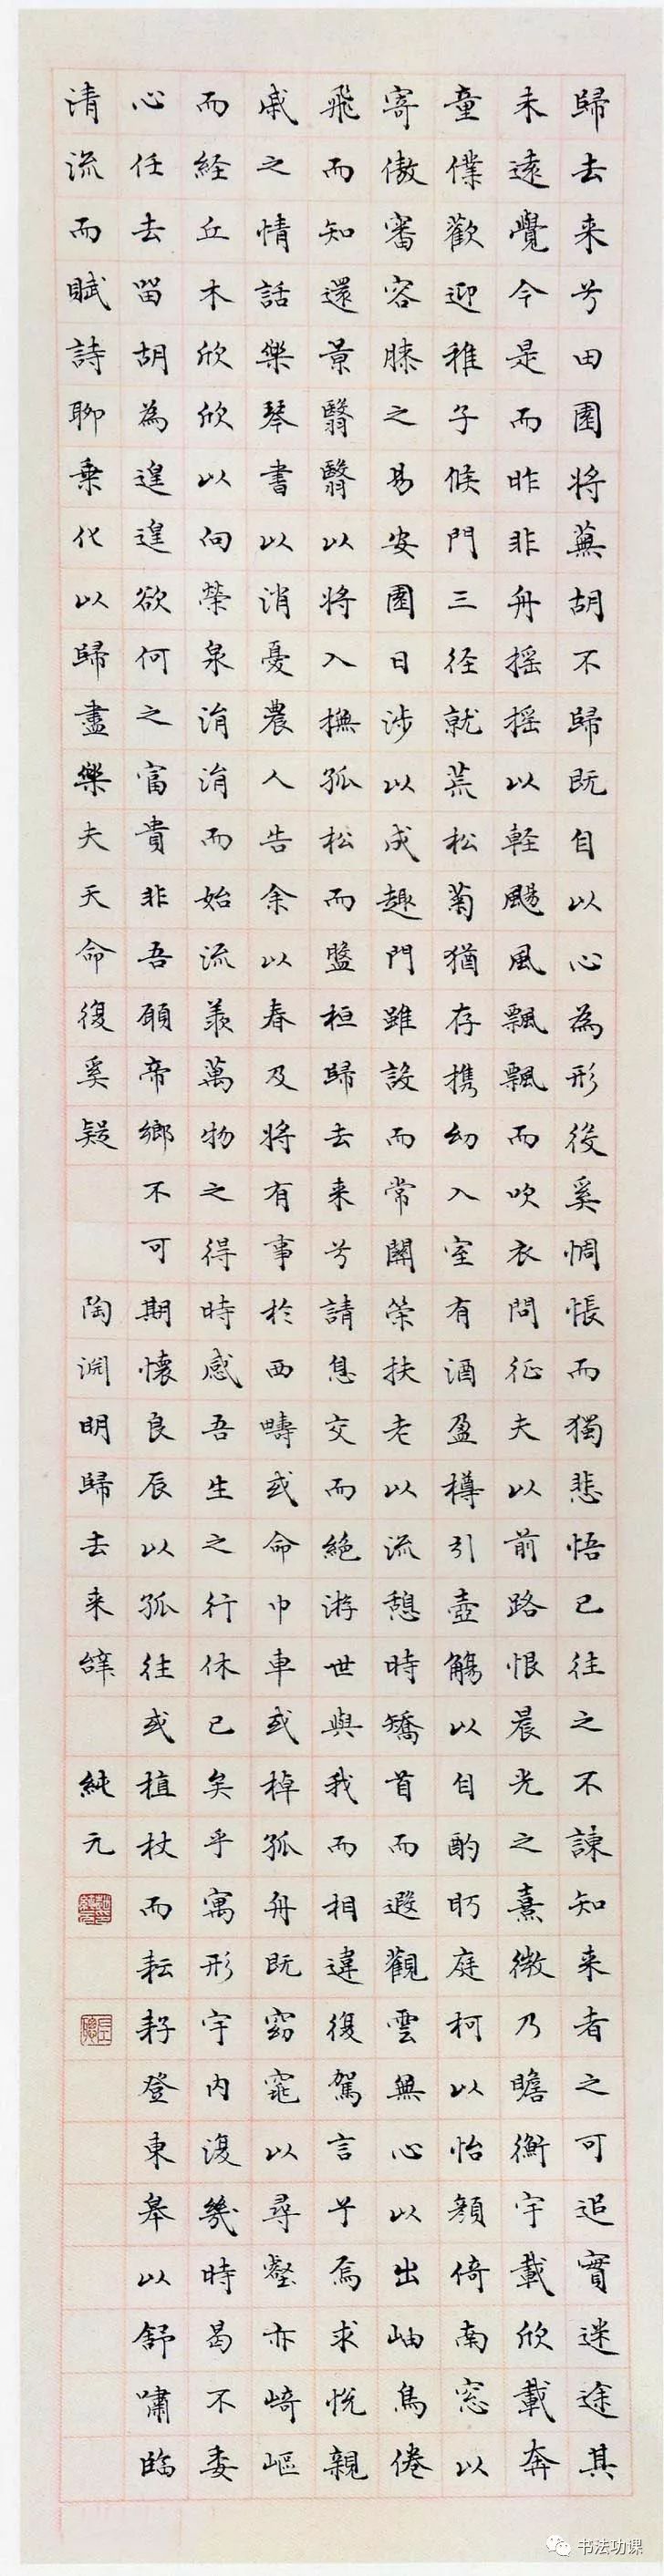 歸去来兮田園将蕪胡不歸既自以心為形役奚惆悵而獨悲悟已往之不諫知来者之可追實迷途其
未遠覺今是而昨非舟摇摇以軽颺風飄飄而吹衣問征夫以前路恨晨光之熹微乃瞻衡宇載欣載奔
童僕歡迎稚子候門三径就荒松菊猶存携幼入室有酒盈樽引壺觴以自酌眄庭柯以怡顔倚南窓以
寄傲審容膝之易安園日涉以成趣門雖設而常關策扶老以流憩時矯首而遐觀雲無心以出岫鳥倦
飛而知還景翳翳以将入撫孤松而盤桓歸去来兮請息交而絶游世與我而相違復駕言兮焉求悦親
戚之情話樂琴書以消憂農人告余以春及将有事於西疇或命巾車或棹孤舟既窈窕以尋壑亦崎嶇
而経丘木欣欣以向榮泉涓涓而始流羨萬物之得時感吾生之行休已矣乎寓形宇内復幾時曷不委
心任去留胡為遑遑欲何之富貴非吾願帝鄉不可期懷良辰以孤往或植杖而耘耔登東皋以舒嘯臨
清流而賦詩聊乗化以歸盡樂夫天命復奚疑 陶淵明歸去来辭 純元
书法功课